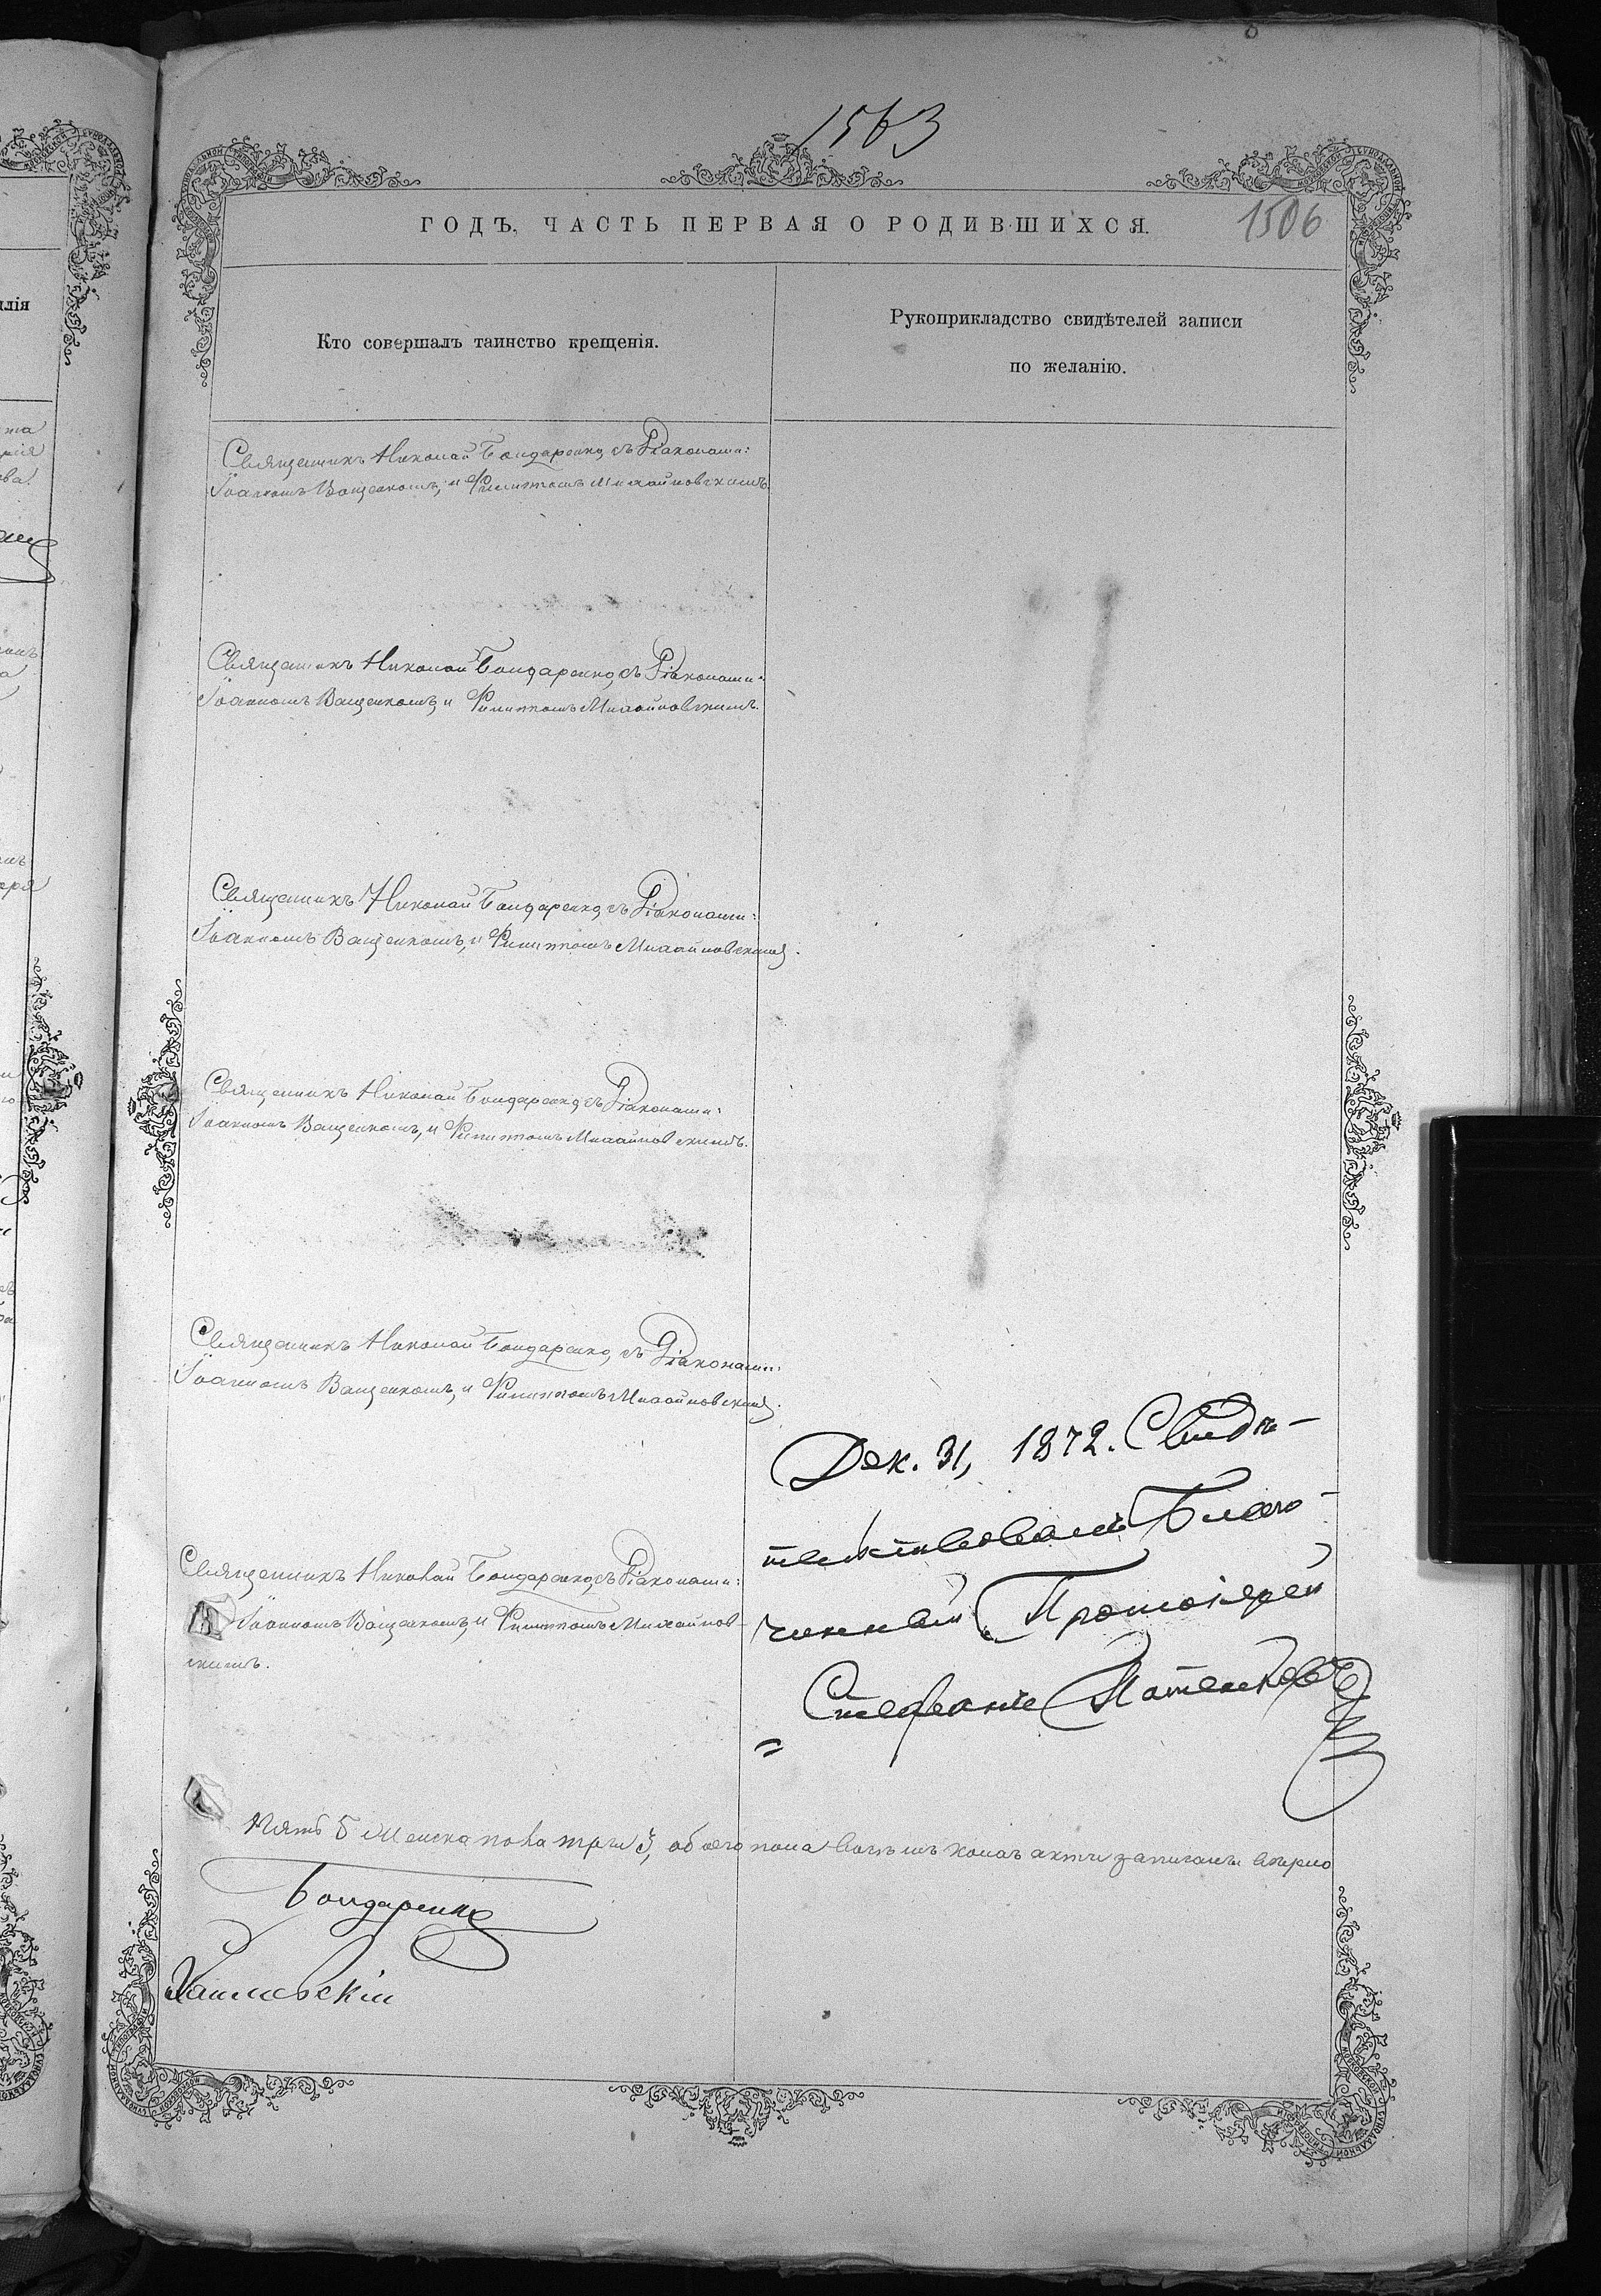 1563
1506
ГОДЪ, ЧАСТЬ ПЕРВАЯ О РОДИВШИХСЯ.
Кто совершалъ таинство крещенія.
Рукоприкладство свидѣтелей записи
по желанію.
Священникъ Николай Бондаренко, съ Діаконами:
Іоанномъ Ващенкомъ, и Филиппомъ Михайловскимъ
Священникъ Николай Бондаренко, съ Діаконами:
Іоанномъ Ващенкомъ, и Филиппомъ Михайловскимъ.
Священникъ Николай Бондаренко, съ Діаконами:
Іоанномъ Ващенкомъ, и Филиппомъ Михайловскимъ.
Священникъ Николай Бондаренко, съ Діаконами:
Іоанномъ Ващенкомъ, и Филиппомъ Михайловскимъ.
Священникъ Николай Бондаренко, съ Діаконами:
Іоанномъ Ващенкомъ, и Филиппомъ Михайловскимъ.
Священникъ Николай Бондаренко, съ Діаконами:
Іоанномъ Ващенкомъ, и Филиппомъ Михайлов-
скимъ.
Дек. 31, 1872. Свидѣ-
тельствовалъ Благо-
чинный Протоіерей
Стефанъ
Пять 5 женска пола три 3, обоего пола восемь актъ записанъ вѣрно
Бондаренко